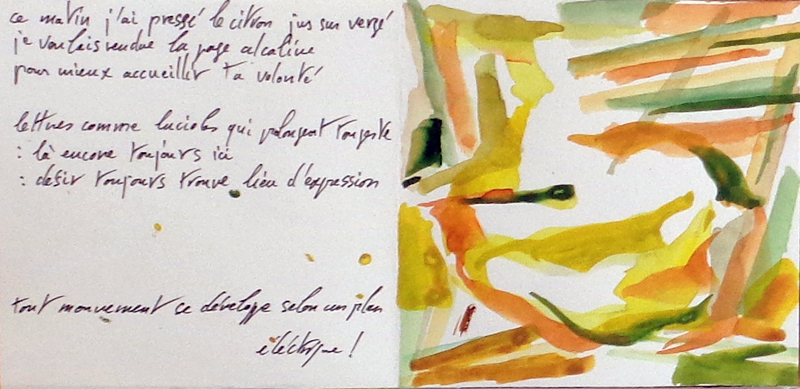 ce matin j'ai pressé le citron jus sur vergé
je voulais rendre la page alcaline
pour mieux accueillir ta volonté
lettres comme lucioles qui prolongent ton geste
: là encore toujours ici
: désir toujours trouve lieu d'expression
tout mouvement se développe selon un plan
électrique !